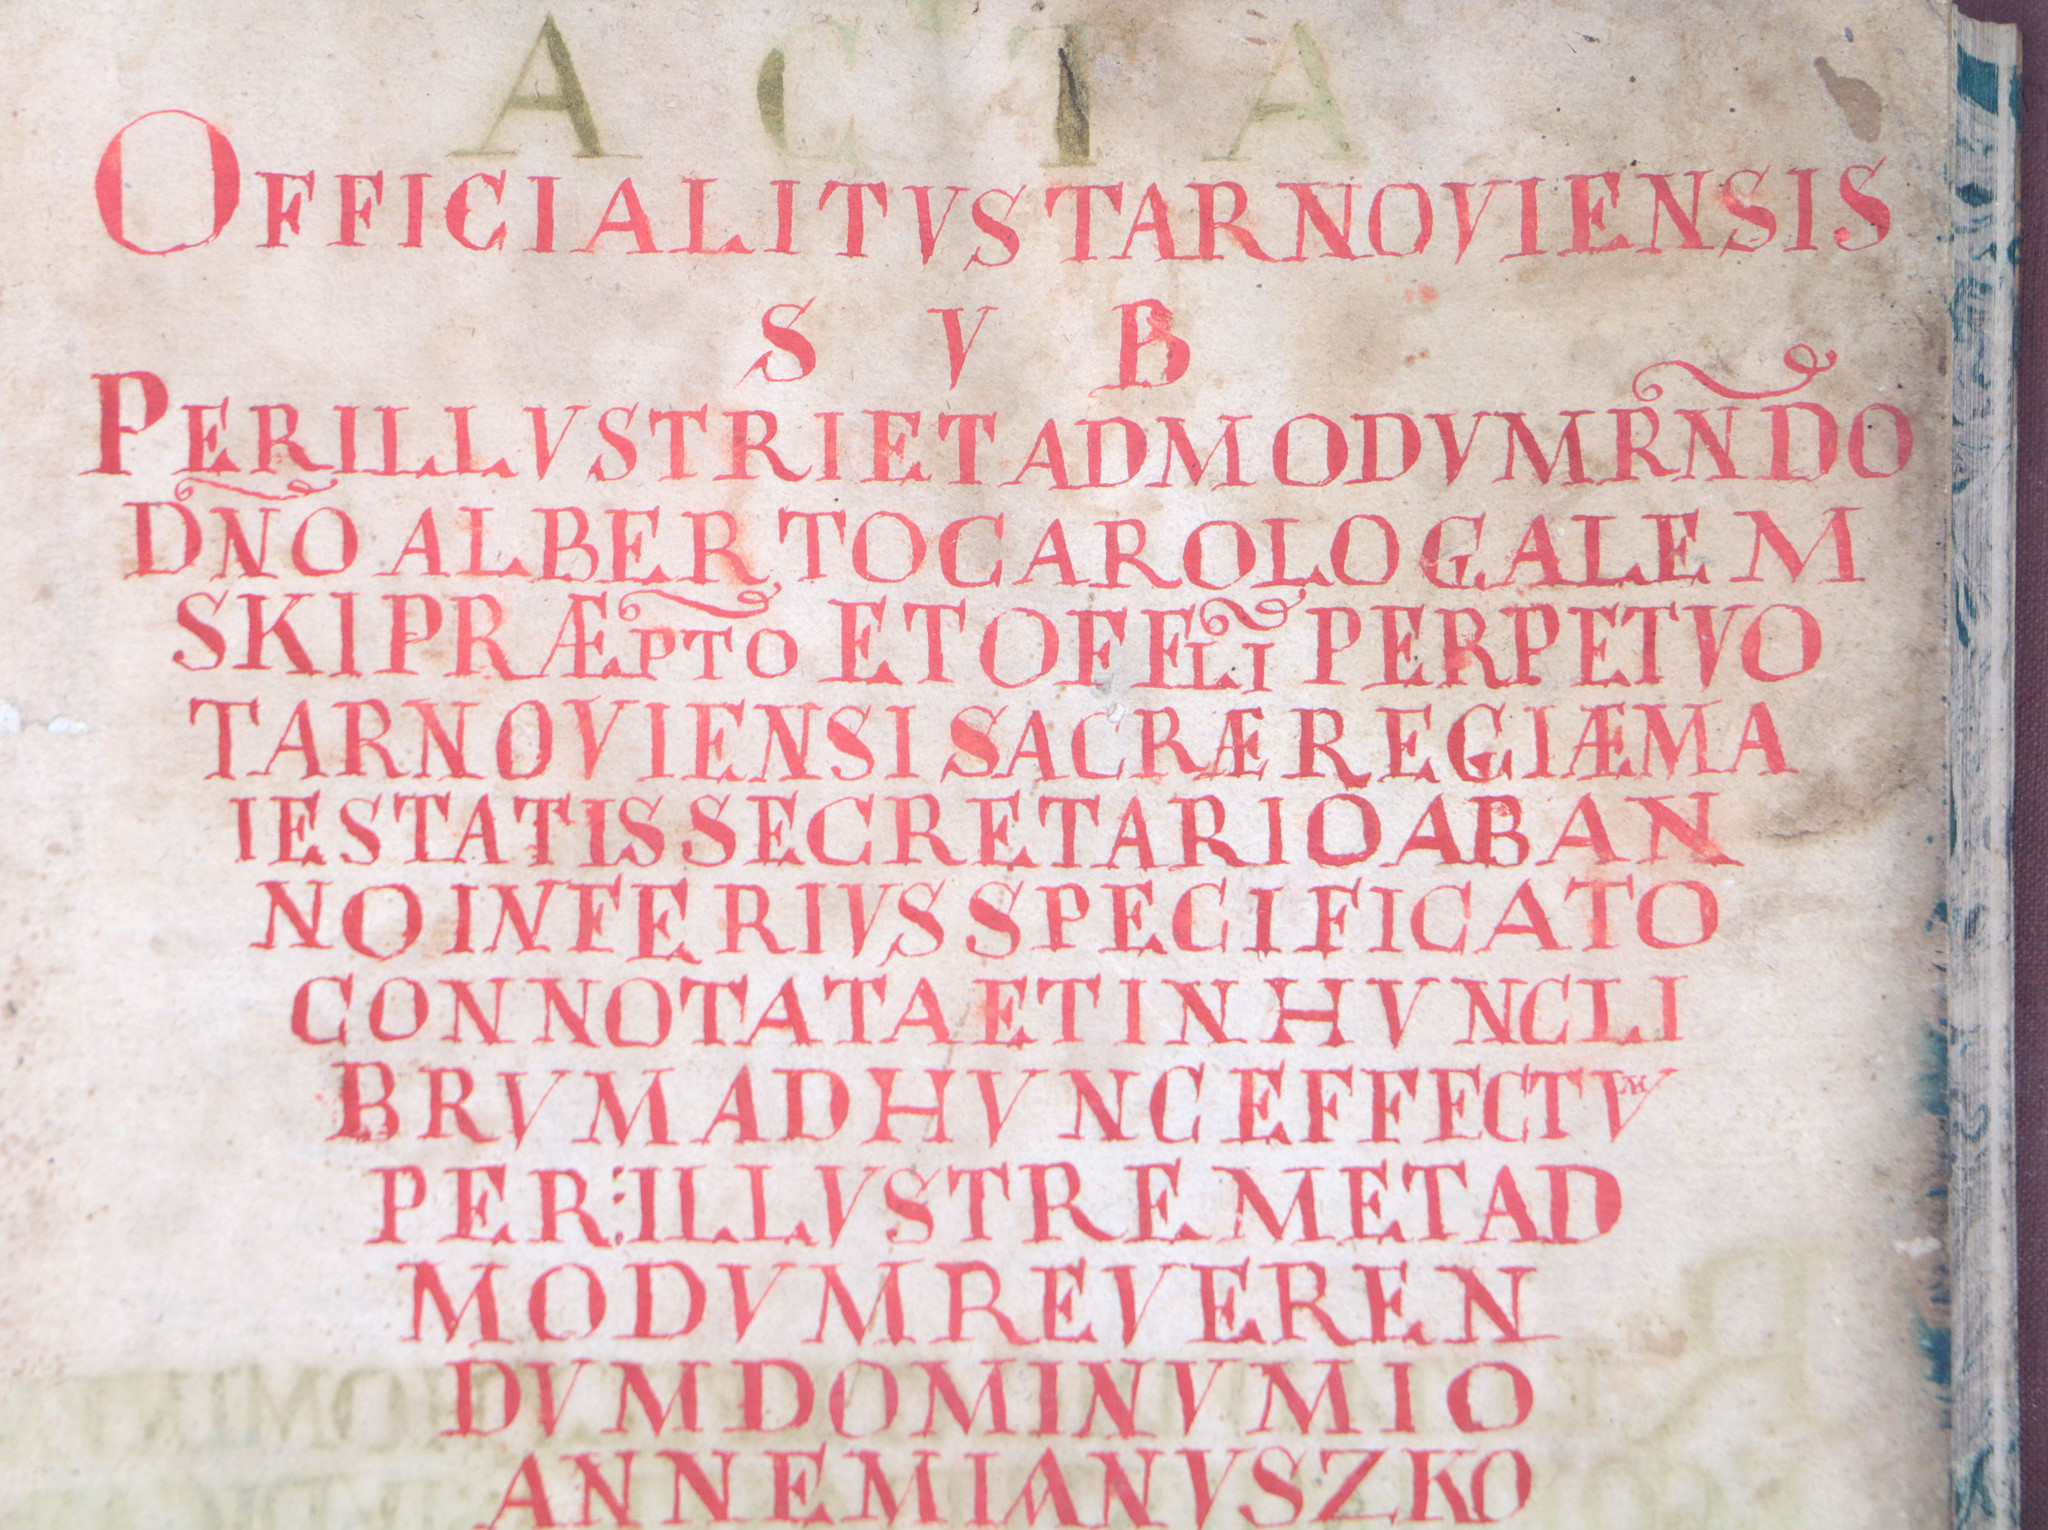 ACTA
OFFICIALITVS TARNOVIENSIS
SVB
PERILLVSTRI ET ADMODVM RÑDO
DÑO ALBERTO CAROLO GALEM
SKI PRÆPTO ET OFFLI PERPETVO
TARNOVIENSI SACRÆ REGIÆ MA
IESTATIS SECRETARIO AB AN
NO INFERIVS SPECIFICATO
CONNOTATA ET IN HVNC LI
BRVM AD HVNC EFFECTVM
PER:ILLVSTREM ET AD
MODVM REVEREN
DVM DOMINVM IO
ANNEM IANVSZKO